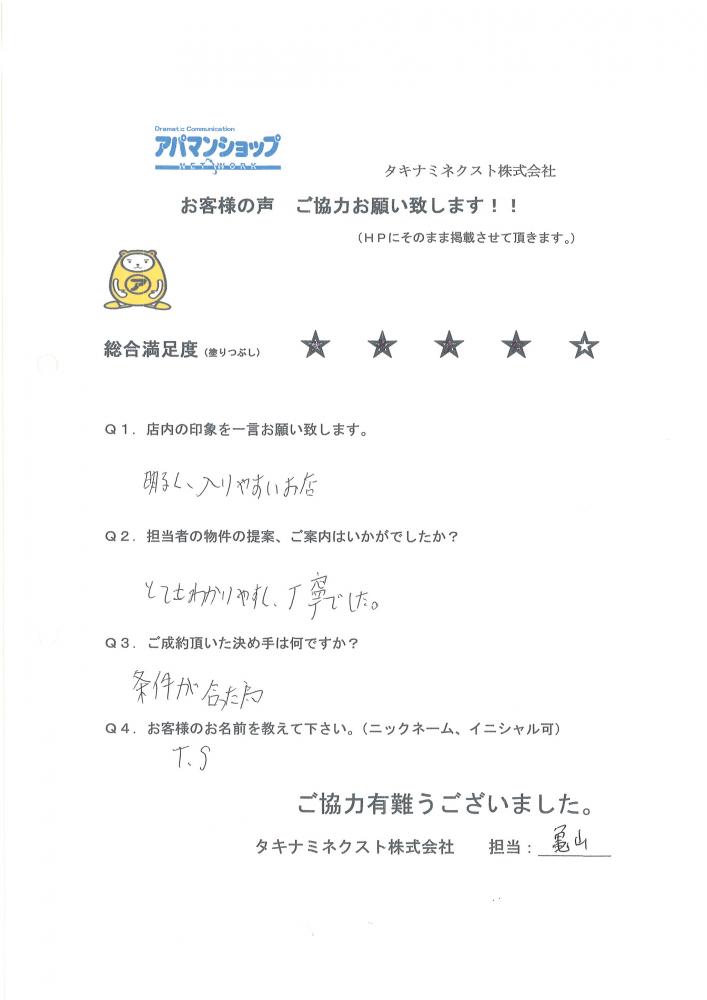 Dramatic Communication
アパマンショップ
NETWORK
タキナミネクスト株式会社
お客様の声　ご協力お願い致します！！
（ＨＰにそのまま掲載させて頂きます。）
ア
総合満足度（塗りつぶし）　★　★　★　★　☆
Ｑ１．店内の印象を一言お願い致します。
明るく、入りやすいお店
Ｑ２．担当者の物件の提案、ご案内はいかがでしたか？
とてもわかりやすく、丁寧でした。
Ｑ３．ご成約頂いた決め手は何ですか？
条件が合った為
Ｑ４．お客様のお名前を教えて下さい。（ニックネーム、イニシャル可）
T.S
ご協力有難うございました。
タキナミネクスト株式会社　担当：亀山